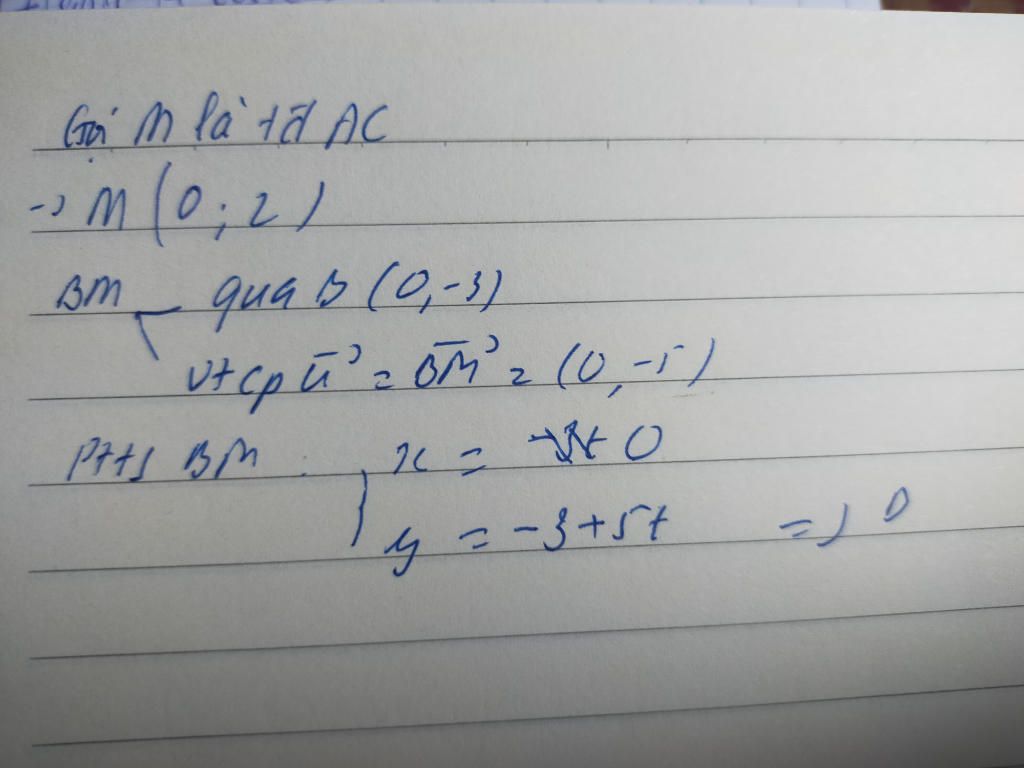 Gọi M là tđ AC
→ M (0; 2)
BM qua B (0, -3)
vtcp u→ = BM→ = (0, -5)
Ptts BM x = 0
y = -3+5t => D